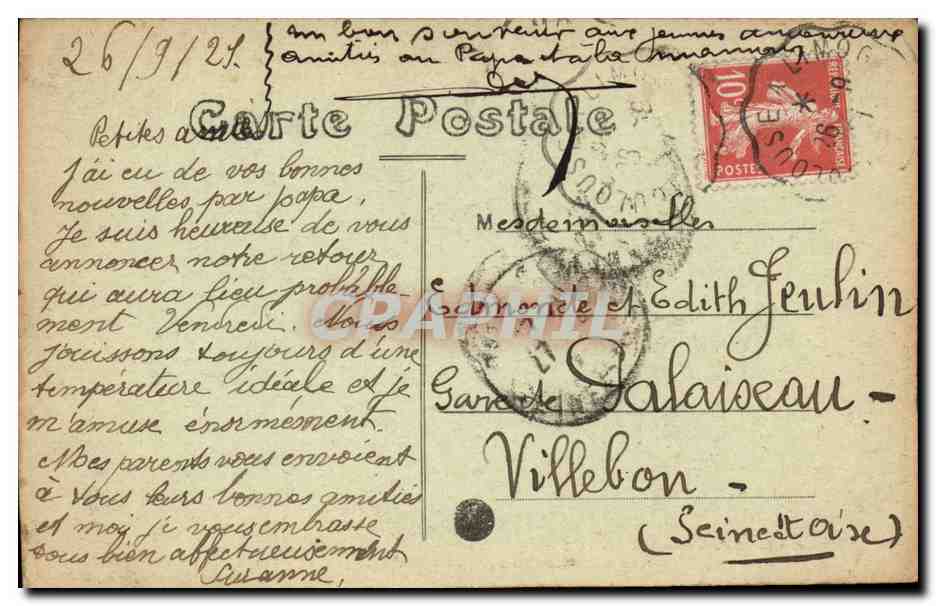 26/9/21.
un bon souvenir aux jeunes
amitiés au Papa et à la
Carte Postale
Petites amies
J'ai eu de vos bonnes
nouvelles par papa,
Je suis heureuse de vous
annoncer notre retour
qui aura lieu probable
ment Vendredi. Nous
jouissons toujours d'une
température idéale et je
m'amuse énormément.
Mes parents vous envoient
à tous leurs bonnes amitiés
et moi je vous embrasse
tous bien affectueusement
Suzanne,
10c
POSTES
Mesdemoiselles
Edmonde et Edith Jeulin
Gare de Palaiseau -
Villebon -
(Seine et Oise)
CPAPHIL